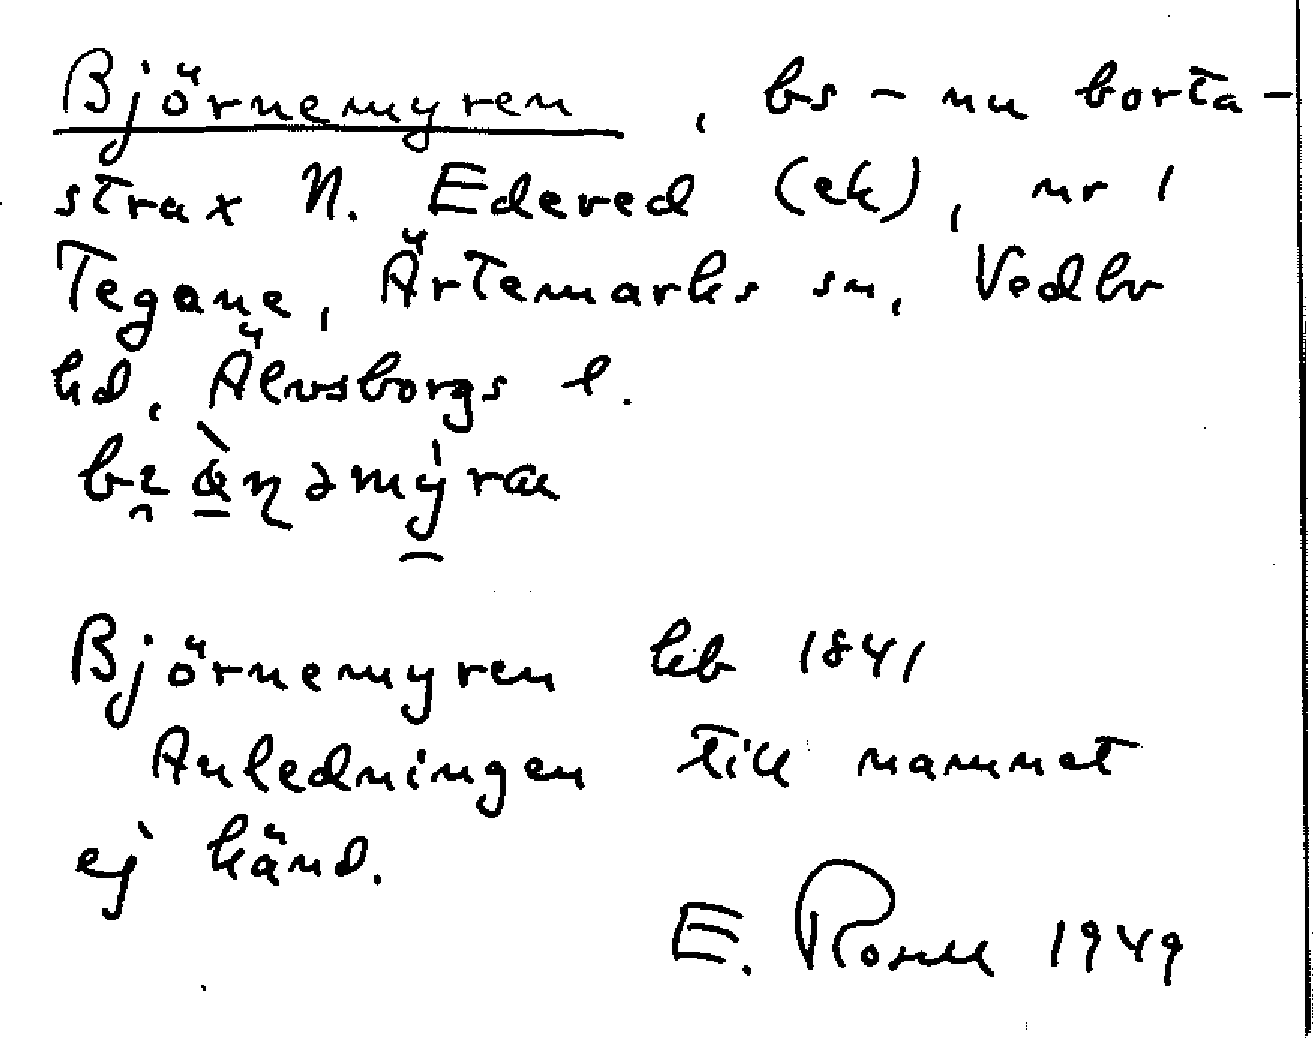 Björnemyren, bs - nu borta -
strax N. Edered (ek), nr 1
Tegane, Ärtemarks sn, Vedbo
hd, Älvsborgs l.
Björnemyren hb 1841
Anledningen till namnet
ej känd.
E. 1949